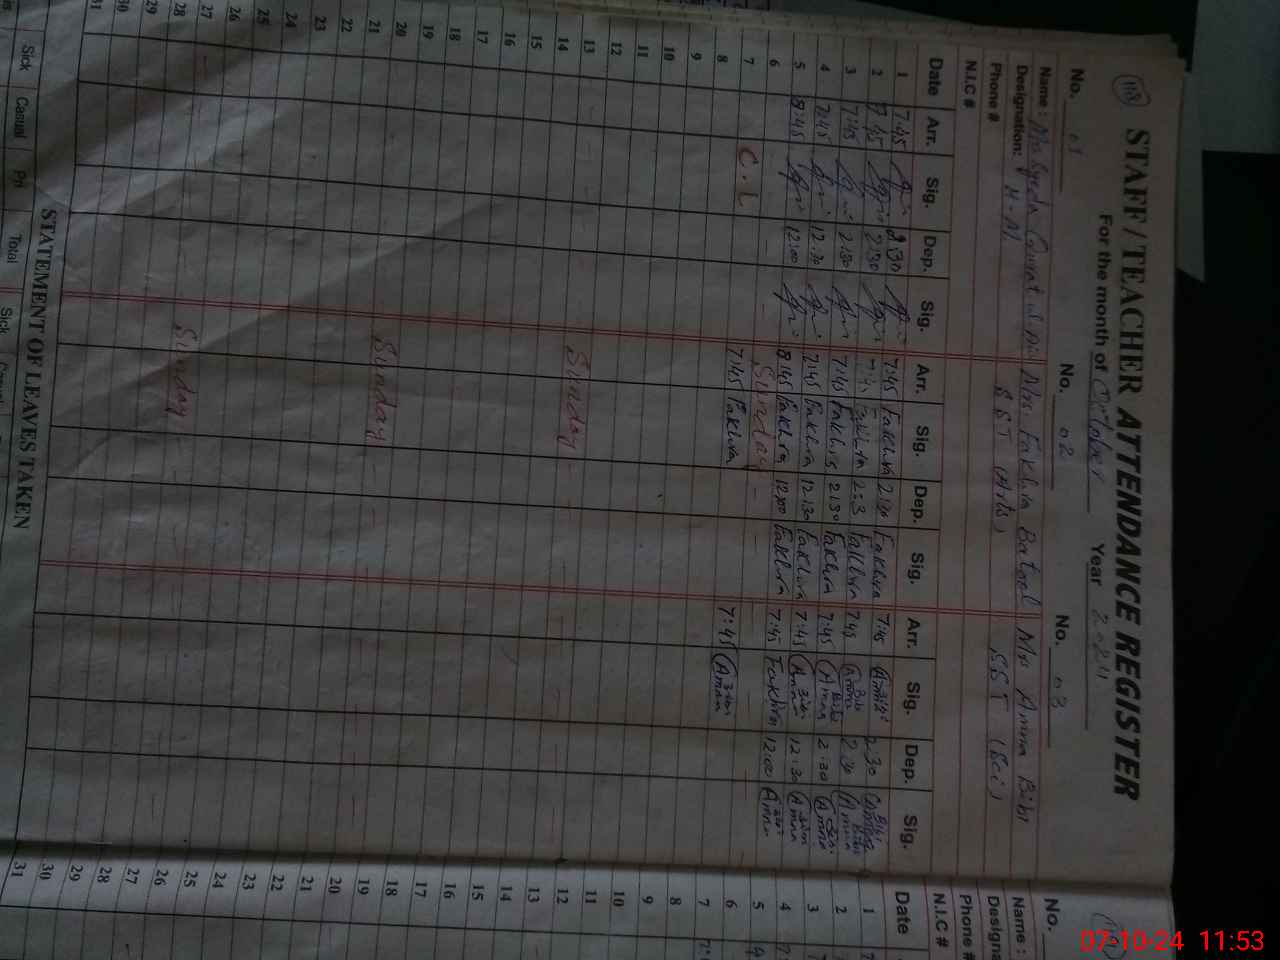 118
STAFF / TEACHER ATTENDANCE REGISTER
For the month of October Year 2024
No. 01 No. 02 No. 03
Name: Mrs Syeda Mrs. Fakhra Batool Mrs Amna Bibi
Designation: H.M SST (Arts) SST (Sci)
Phone #
N.I.C #
Date Arr. Sig. Dep. Sig. Arr. Sig. Dep. Sig. Arr. Sig. Dep. Sig.
1 7:45 2:30 7:45 Fakhra 2:30 Fakhra 7:45 Amna 2:30
2 7:45 2:30 Fakhra 2:3 Fakhra 7:45 Amna 2:30 Amna
3 7:45 2:30 7:45 Fakhra 2:30 Fakhra 7:45 Amna 2:30 Amna
4 7:45 12:30 7:45 Fakhra 12:30 Fakhra 7:45 Amna 12:30 Amna
5 8:45 12:00 8:45 Fakhra 12:00 Fakhra 7:45 Fakhra 12:00 Amna
6 Sunday
7 C.L 7:45 Fakhra 7:45 Amna
8
9
10
11
12
13 Sunday
14
15
16
17
18
19
20 Sunday
21
22
23
24
25
26
27 Sunday
28
29
30
31
STATEMENT OF LEAVES TAKEN
Sick Casual Pri Total Sick
No.
Name :
Designa
Phone #
N.I.C #
Date
1
2
3
4
5
6
7
8
9
10
11
12
13
14
15
16
17
18
19
20
21
22
23
24
25
26
27
28
29
30
31
07-10-24 11:53